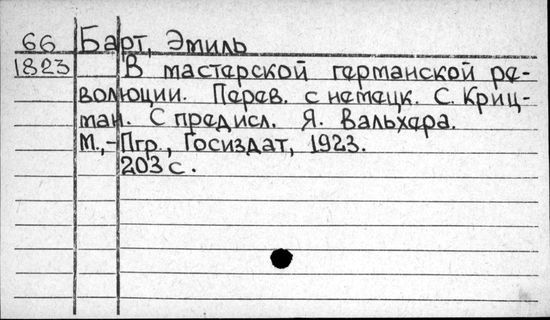 66 Барт, Эмиль
1823 В мастерской германской ре-
волюции. Перев. с немецк. С. Криц-
ман. С предисл. Я. Вальхера.
М.,-Пгр., Госиздат, 1923.
203 с.